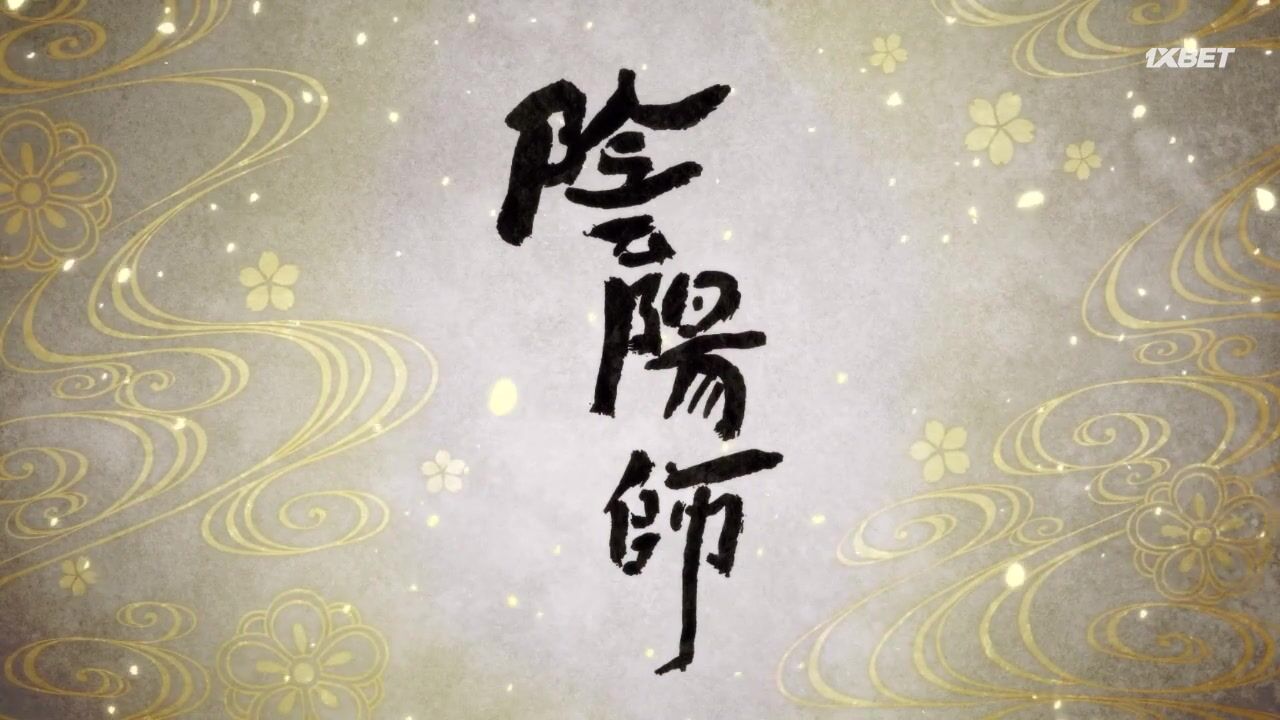 陰陽師
1XBET